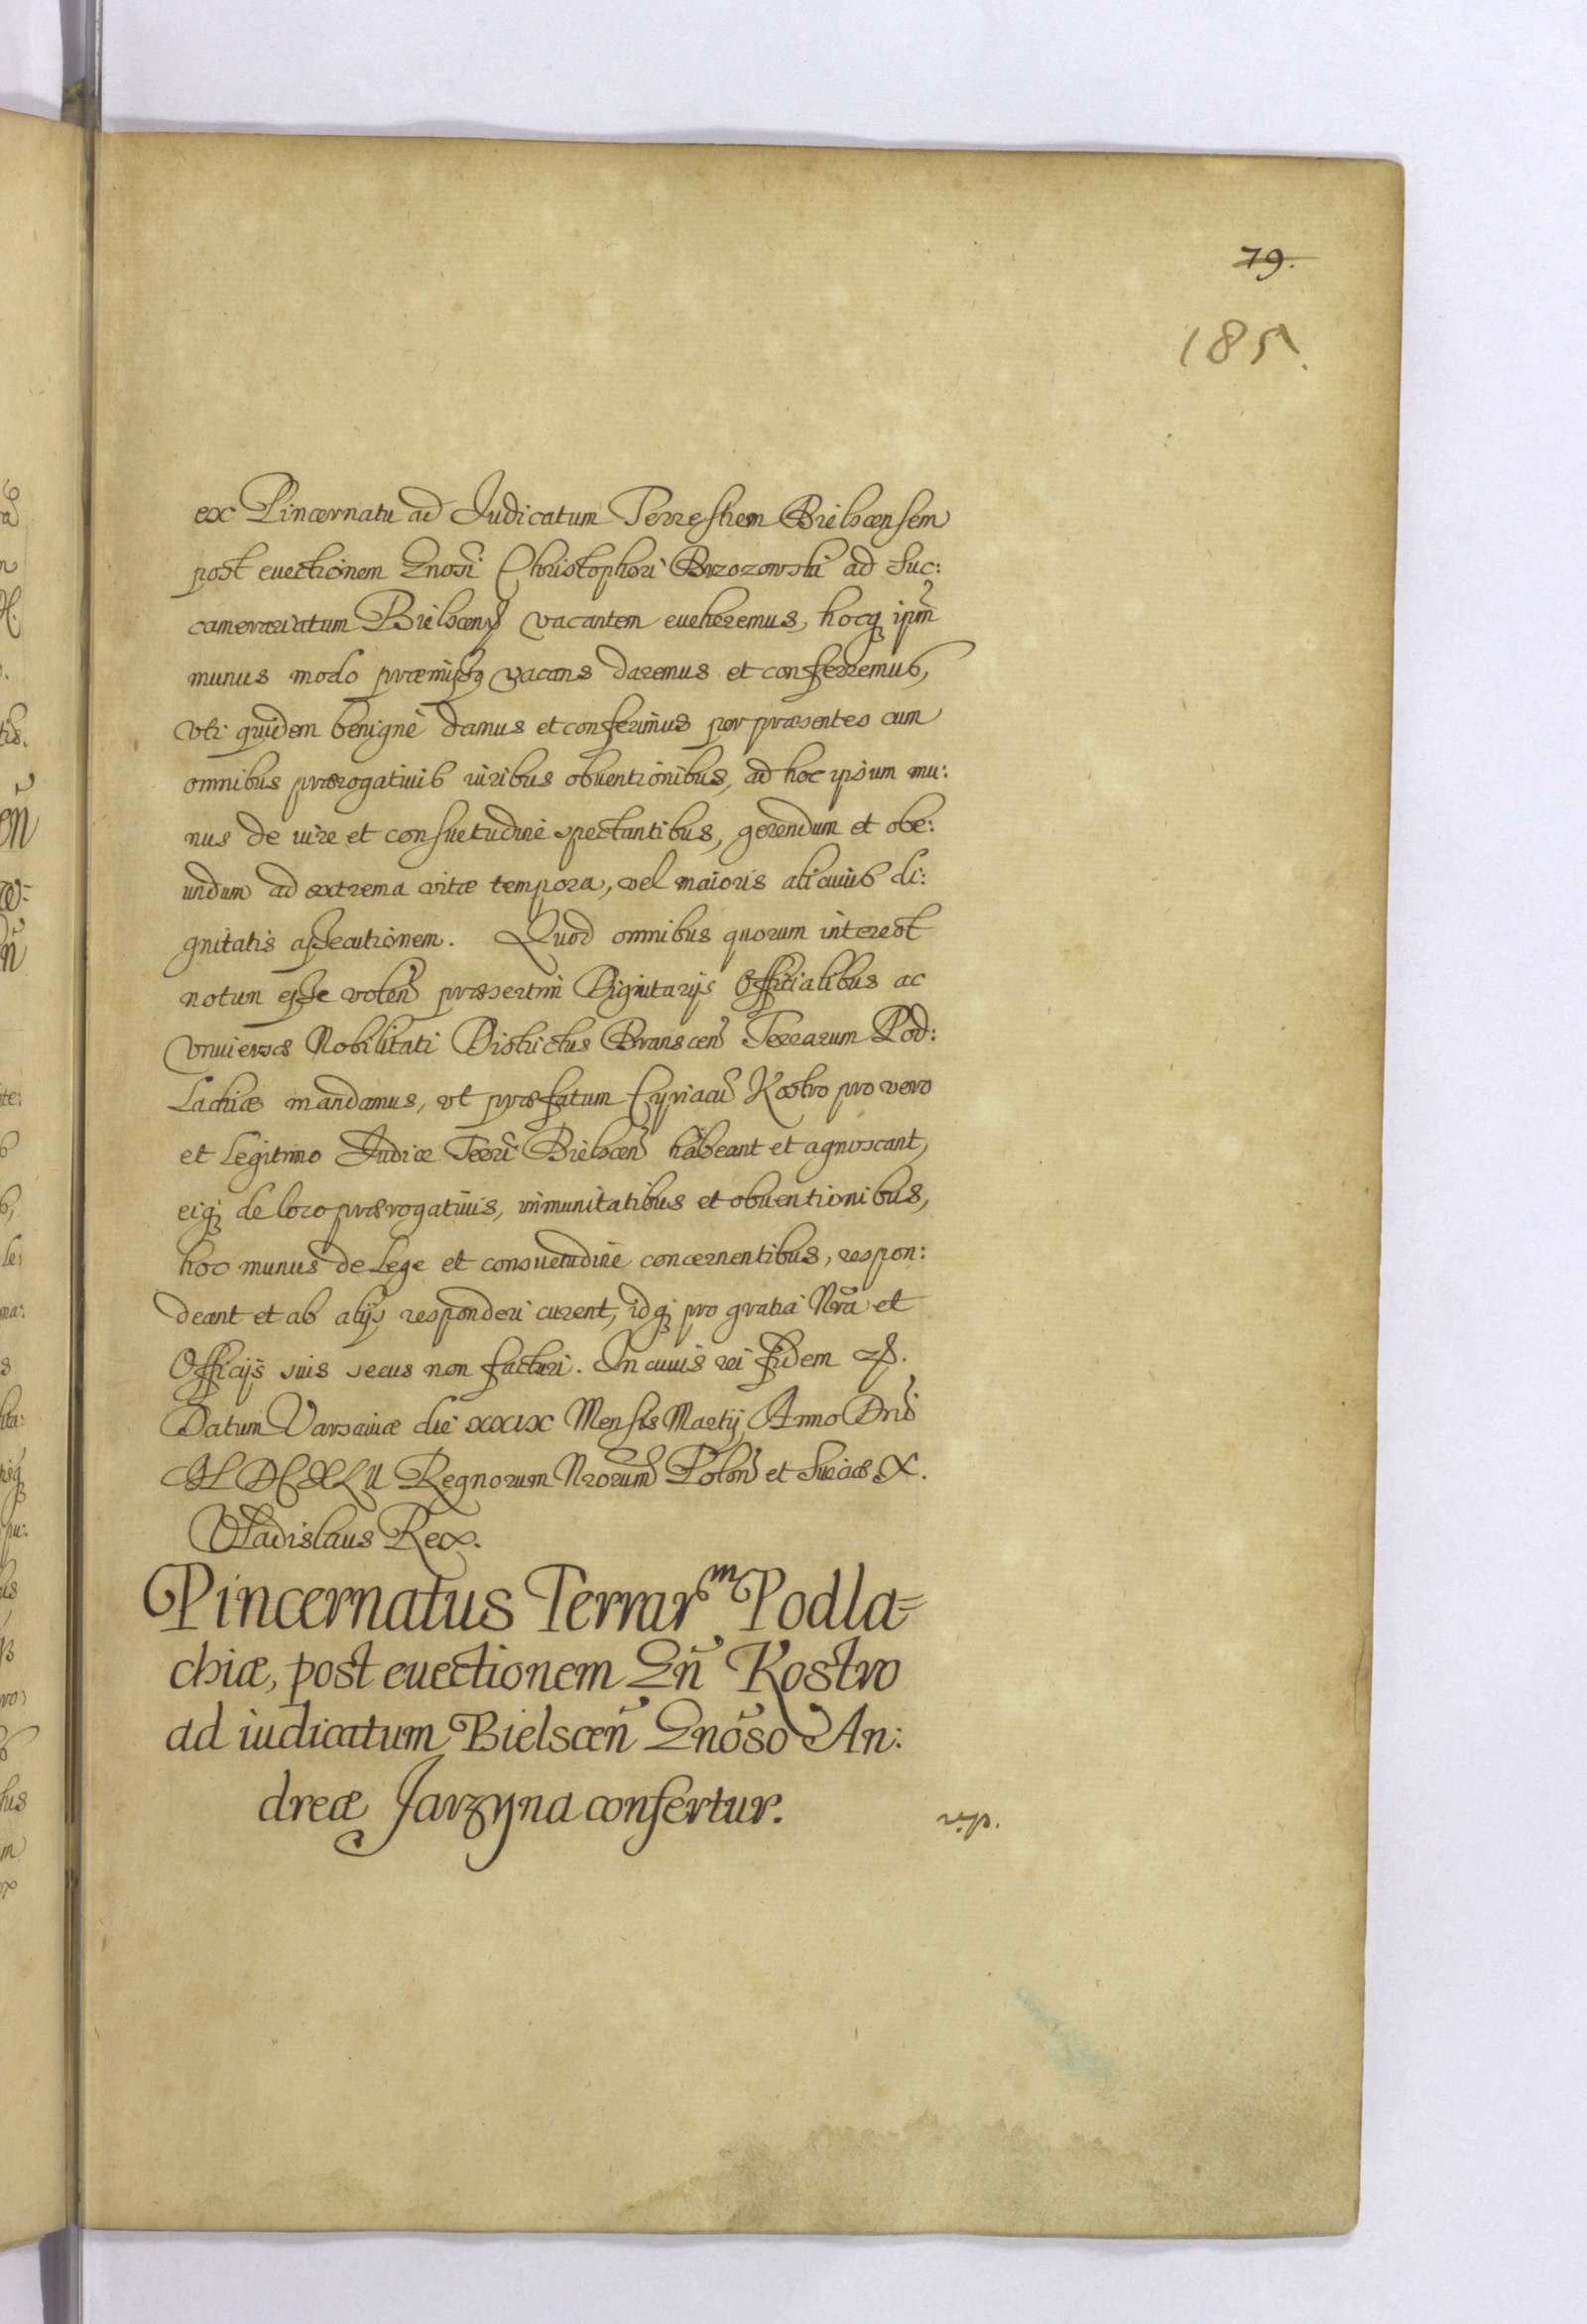 79.
185.
ex Pincernatu ad Judicatum Terrestrem Bielscensem
post euectionem Gnosi Christophori Brzozowski ad Suc:
camerariatum Bielscen vacantem eueheremus, hocq ipm
munus modo præmisso vacans daremus et conferremus,
vti quidem benignè damus et conferimus per præsentes cum
omnibus prærogatiuis iuribus obuentionibus, ad hoc ipsum mu:
nus de iure et consuetudine spectantibus, gerendum et obe:
undum ad extrema vitæ tempora, vel maioris alicuius di:
gnitatis assecutionem. Quod omnibus quorum interest
notum esse volen præsertim Dignitarijs Officialibus ac
vniuersæ Nobilitati Districtus Branscen Terrarum Pod:
lachiæ mandamus, vt præfatum Cyriacu Kostro pro vero
et legitimo Judice Terri Bielscen habeant et agnoscant,
eiq de loco prærogatiuis, immunitatibus et obuentionibus,
hoc munus de lege et consuetudine concernentibus, respon:
deant et ab alijs responderi curent, idq pro gratia Nra et
Officijs suis secus non facturi. In cuius rei fidem &.
Datum Varsauiæ die xxix Mensis Martij Anno Dni
M DC XLII Regnorum Nrorum Polon et Sueciæ X.
Vladislaus Rex.
Pincernatus Terrarm Podla=
chiæ, post euectionem Gn Kostro
ad iudicatum Bielscen Gnoso An:
dreæ Jarzyna confertur.